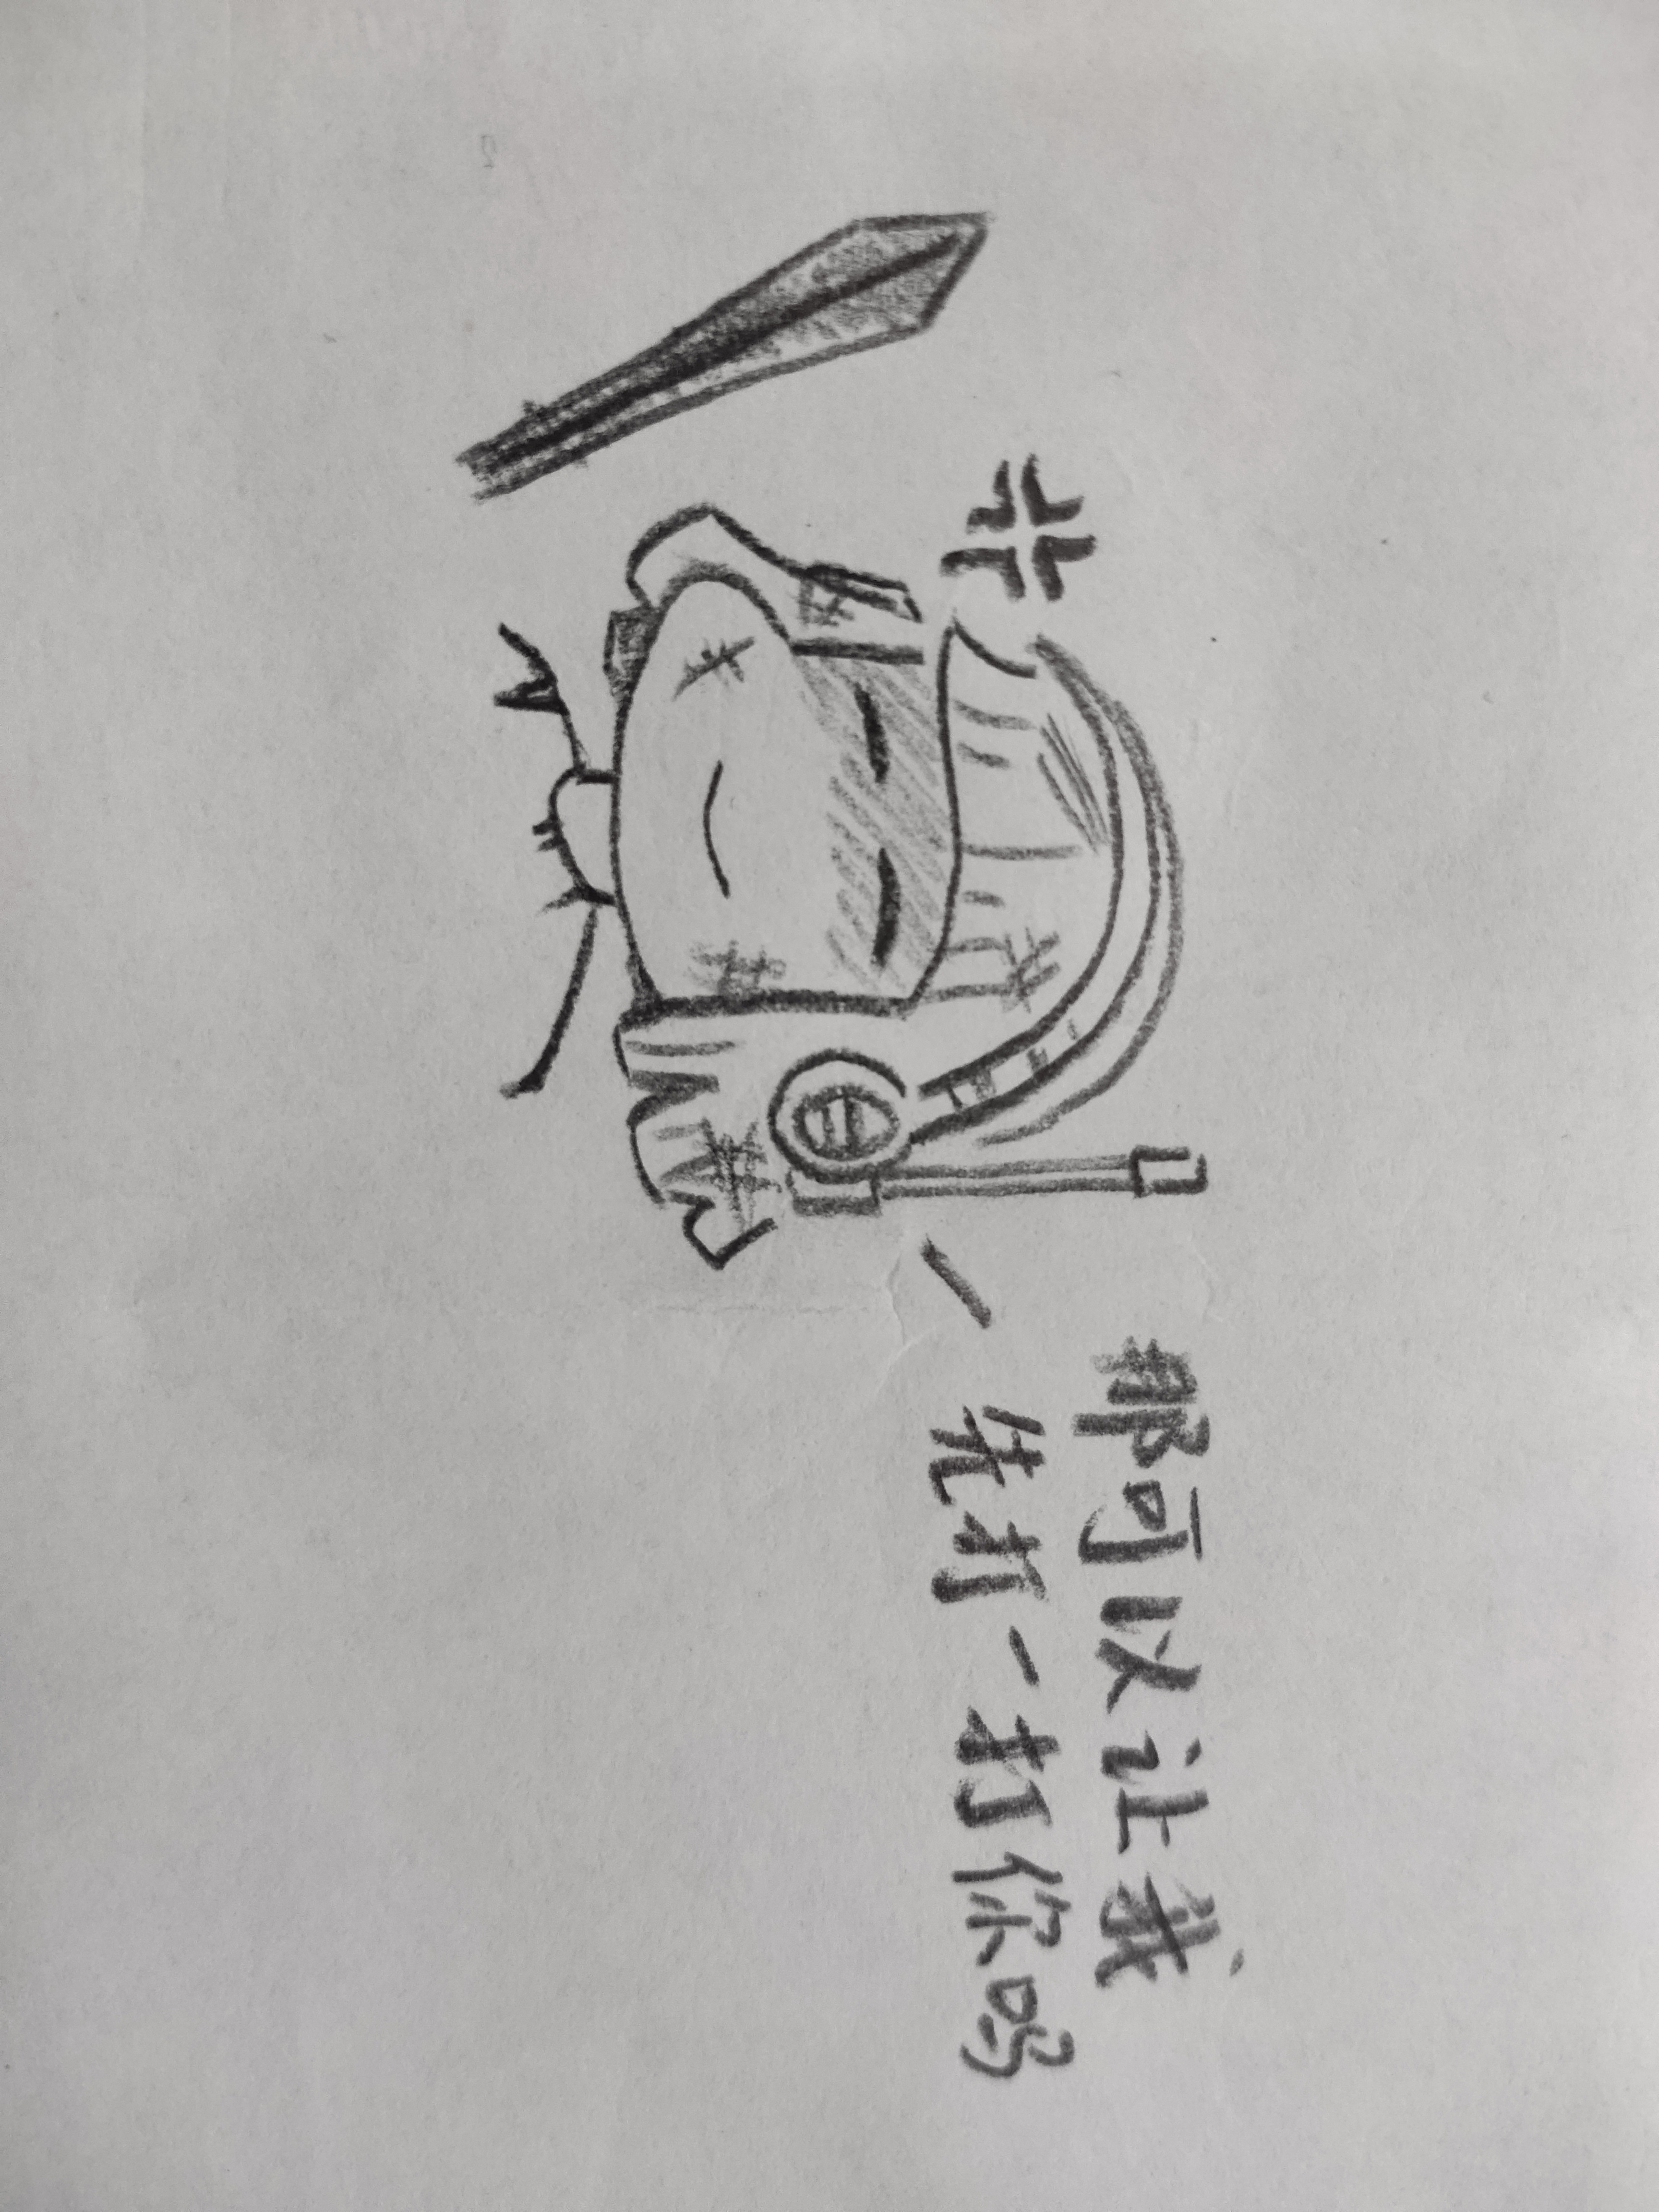 那可以让我
先打一打你吗